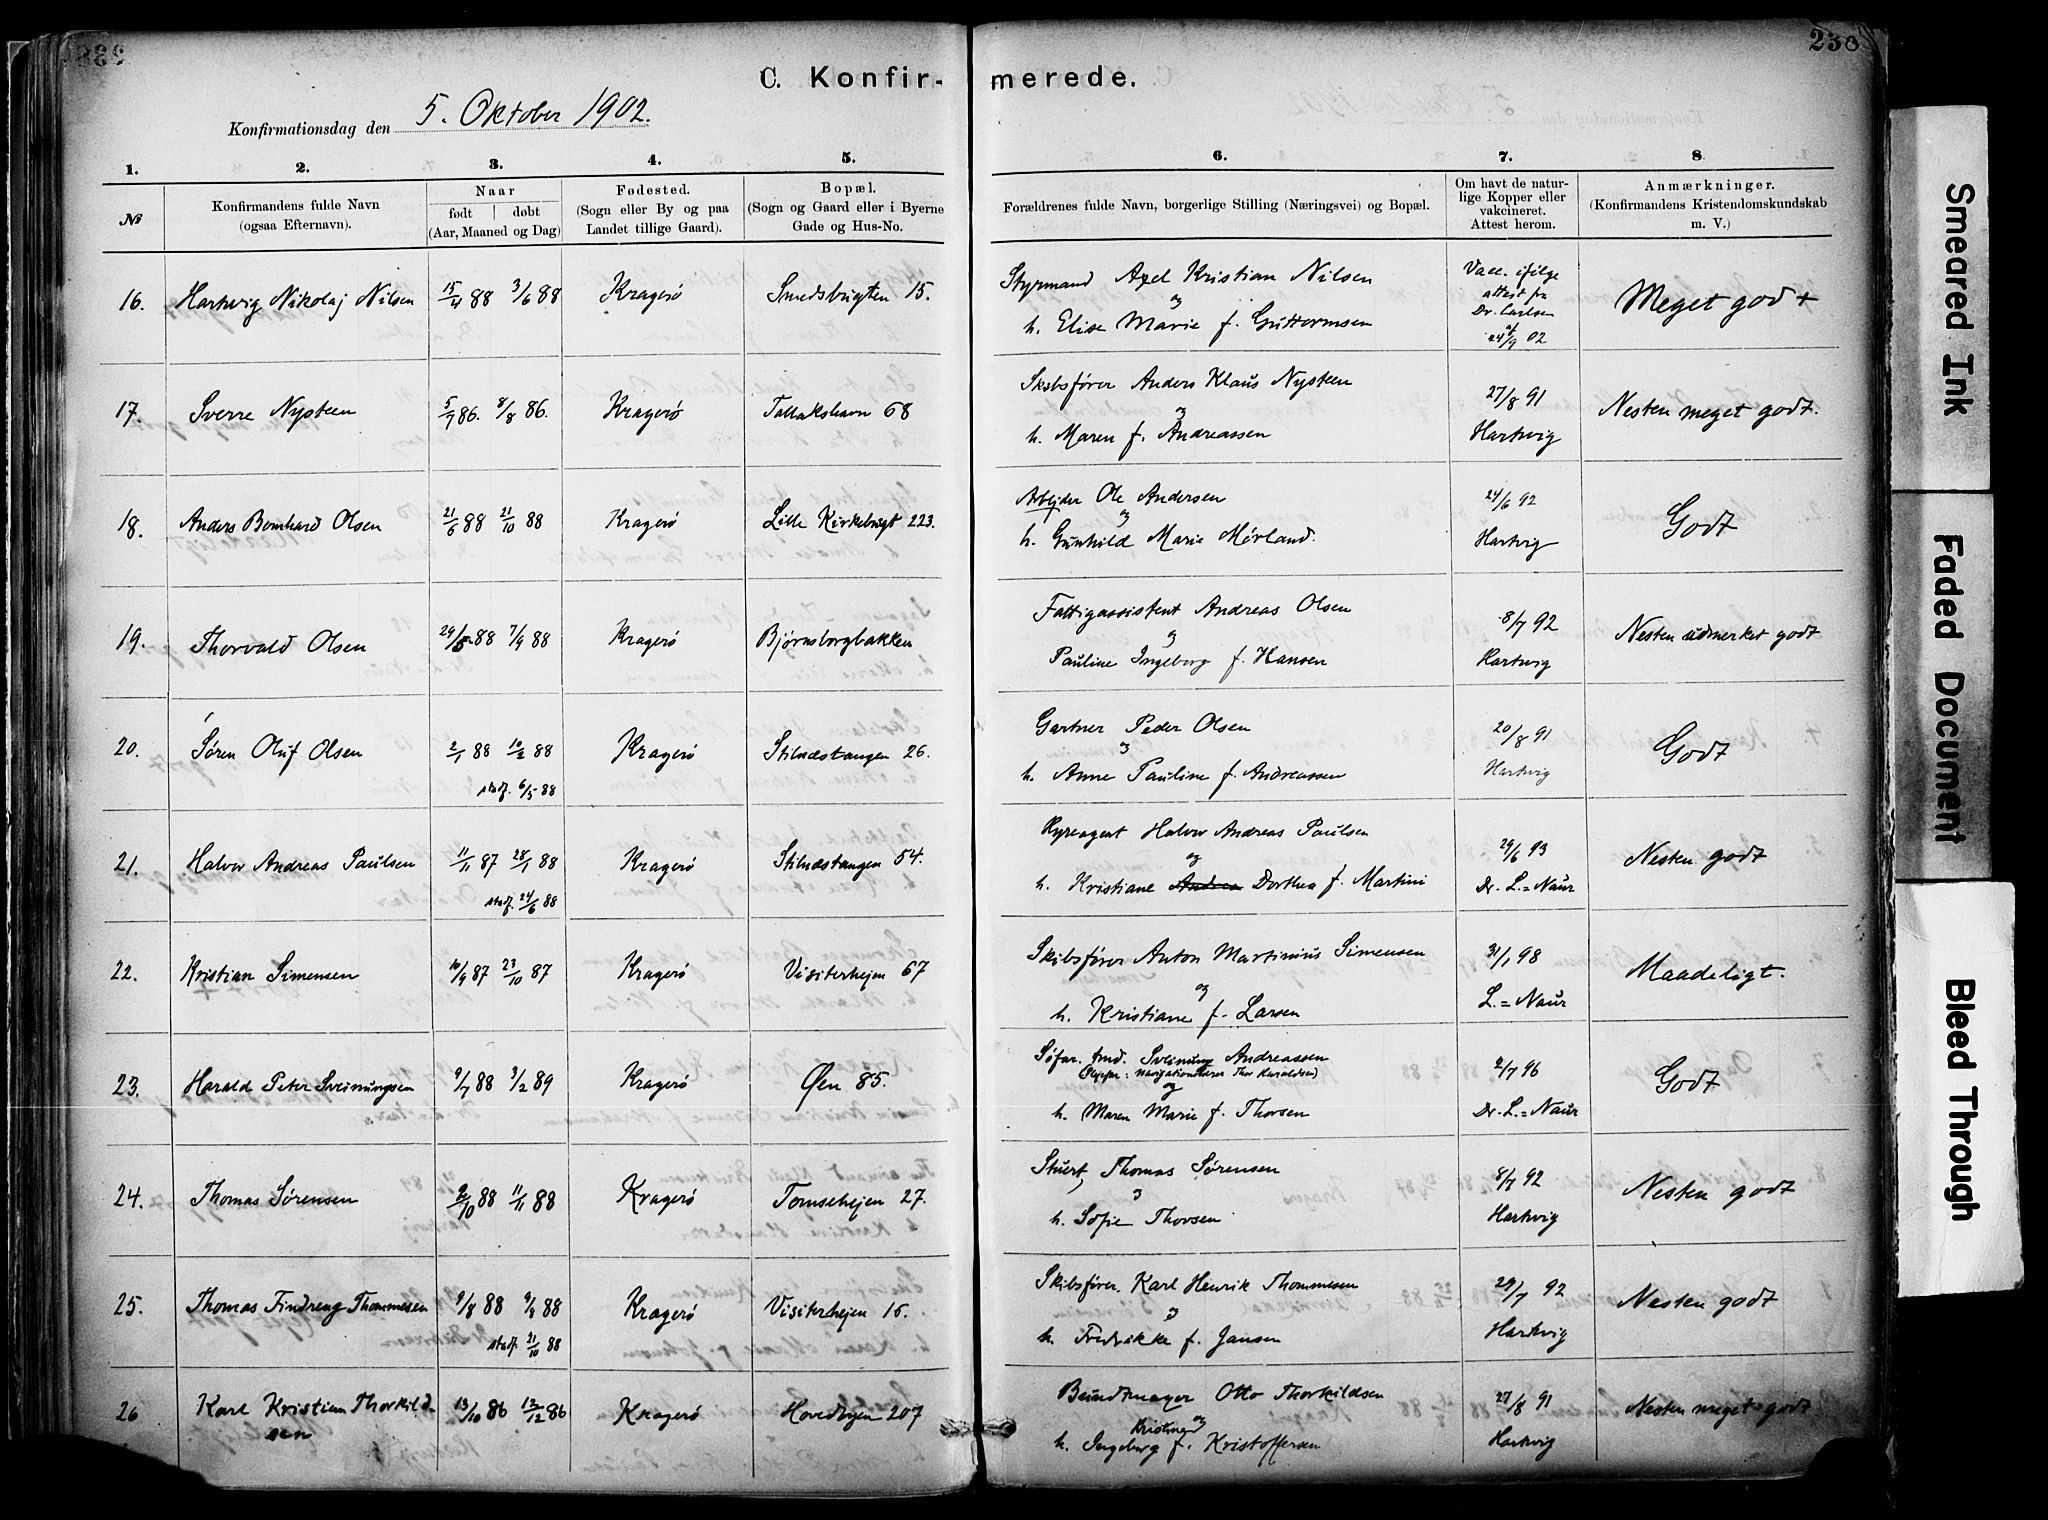 238
C. Konfirmerede.
Konfirmationsdag den 5. Oktober 1902.
1. 2. 3. 4. 5. 6. 7. 8.
№
Konfirmandens fulde Navn (ogsaa Efternavn).
Naar født | døbt (Aar, Maaned og Dag)
Fødested. (Sogn eller By og paa Landet tillige Gaard).
Bopæl. (Sogn og Gaard eller i Byerne Gade og Hus-No.
Forældrenes fulde Navn, borgerlige Stilling (Næringsvei) og Bopæl.
Om havt de naturlige Kopper eller vakcineret. Attest herom.
Anmærkninger. (Konfirmandens Kristendomskundskab m. V.)
16. Hartvig Nikolaj Nilsen 15/4 88 3/6 88 Kragerø Smedsbugten 15. Styrmand Axel Kristian Nilsen
og
h. Elise Marie f. Guttormsen
Vacc. ifølge
attest fra
Dr. Carlsen
af
24/9 02
Meget god +
17. Sverre Nysteen 5/7 86. 8/8 86. Kragerø Tallakshavn 68
Skibsfører Anders Klaus Nysteen
og
h. Maren f. Andreassen
27/8 91
Hartvig
Nesten meget godt.
18. Anders Bernhard Olsen 21/6 88 21/10 88 Kragerø Lille Kirkebugt 223.
Arbejder Ole Andersen
og
h. Gunhild Marie Mørland.
24/6 92
Hartvig
Godt
19. Thorvald Olsen 29/5 88 7/9 88 Kragerø Bjørnsborgbakken
Fattigassistent Andreas Olsen
og
Pauline Ingeborg f. Hansen
8/7 92
Hartvig
Nesten udmerket godt
20. Søren Oluf Olsen 2/1 88 10/2 88 Kragerø Stilnæstangen 26.
stadf. 6/5 88
Gartner Peder Olsen
og
h. Anne Pauline f. Andreassen
20/8 91
Hartvig
Godt
21. Halvor Andreas Paulsen 11/11 87 28/1 88 Kragerø Stilnæstangen 54.
stadf. 24/6 88
Hyreagent Halvor Andreas Paulsen
og
h. Kristiane Andrea Dorthea f. Martini
29/6 93
Dr. L. = Naur
Nesten godt
22. Kristian Simensen 10/9 87 23/10 87 Kragerø Visiterhejen 67
Skibsfører Anton Martinius Simensen
og
h. Kristiane f. Larsen
31/1 98
L. = Naur
Maadeligt.
23. Harald Peter Sveinungsen 9/7 88 3/2 89 Kragerø Øen 85.
Søfar. tmd. Sveinung Andreassen
(Plejefar: navigationslærer Thor Haraldsen)
og
h. Maren Marie f. Thorsen
2/7 96
Dr. L. = Naur
Godt
24. Thomas Sørensen 2/10 88 11/11 88 Kragerø Tomsehejen 27.
Stuert, Thomas Sørensen
og
h. Sofie Thorsen
8/7 92
Hartvig
Nesten godt
25. Thomas Findreng Thommesen 9/8 88 9/9 88 Kragerø Visiterhejen 15.
stadf. 21/10 88
Skibsfører Karl Henrik Thommesen
og
h. Fredrikke f. Jansen
29/7 92
Hartvig
Nesten godt
26 Karl Kristian Thorkild
sen
13/10 86 12/12 86 Kragerø Hovedbyen 207
Bundtmager Otto Thorkildsen
og
Kristine
h. Ingeborg f. Kristoffersen
27/8 91
Hartvig
Nesten meget godt
Smeared Ink
Faded Document
Bleed Through